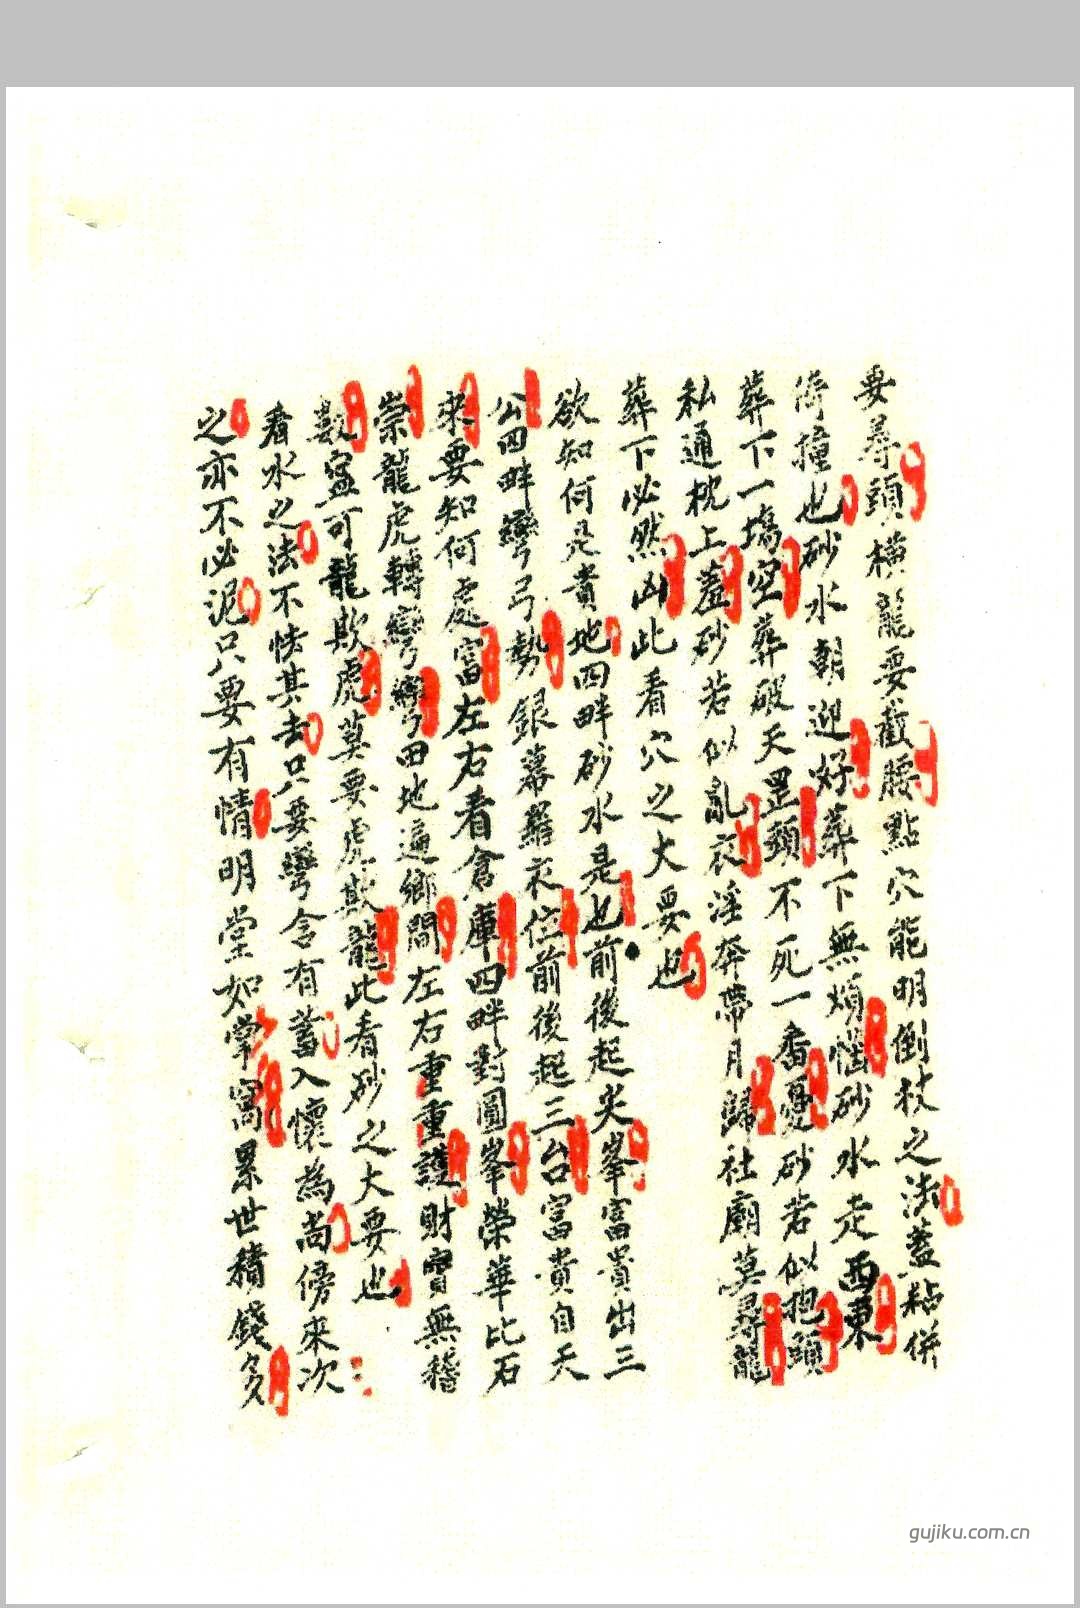 要尋頭橫龍要觀腰點穴能明倒杖之法蓋粘併
倚撞也砂水朝迎好葬下無煩惱砂水走西東
葬下一塲空葬破天罡頭不死一番憂砂若似抱頭
私通枕上羞砂若似亂衣淫奔帶月歸社廟莫尋龍
葬下必然凶此看穴之大要也
欲知何是貴地四畔砂水是也前後起尖峯富貴出三
公四畔彎弓勢銀幕羅衣位前後起三台富貴自天
來要知何處富左右看倉庫四畔對圓峯榮華比石
崇龍虎轉彎彎田地遍鄉間左右重重護財寶無稽
數寔可龍欺虎莫要虎欺龍此看砂之大要也
看水之法不怯其去只要彎含有蓄入懷為尚傍來次
之亦不必泥只要有情明堂如掌窩累世積錢多
gujiku.com.cn